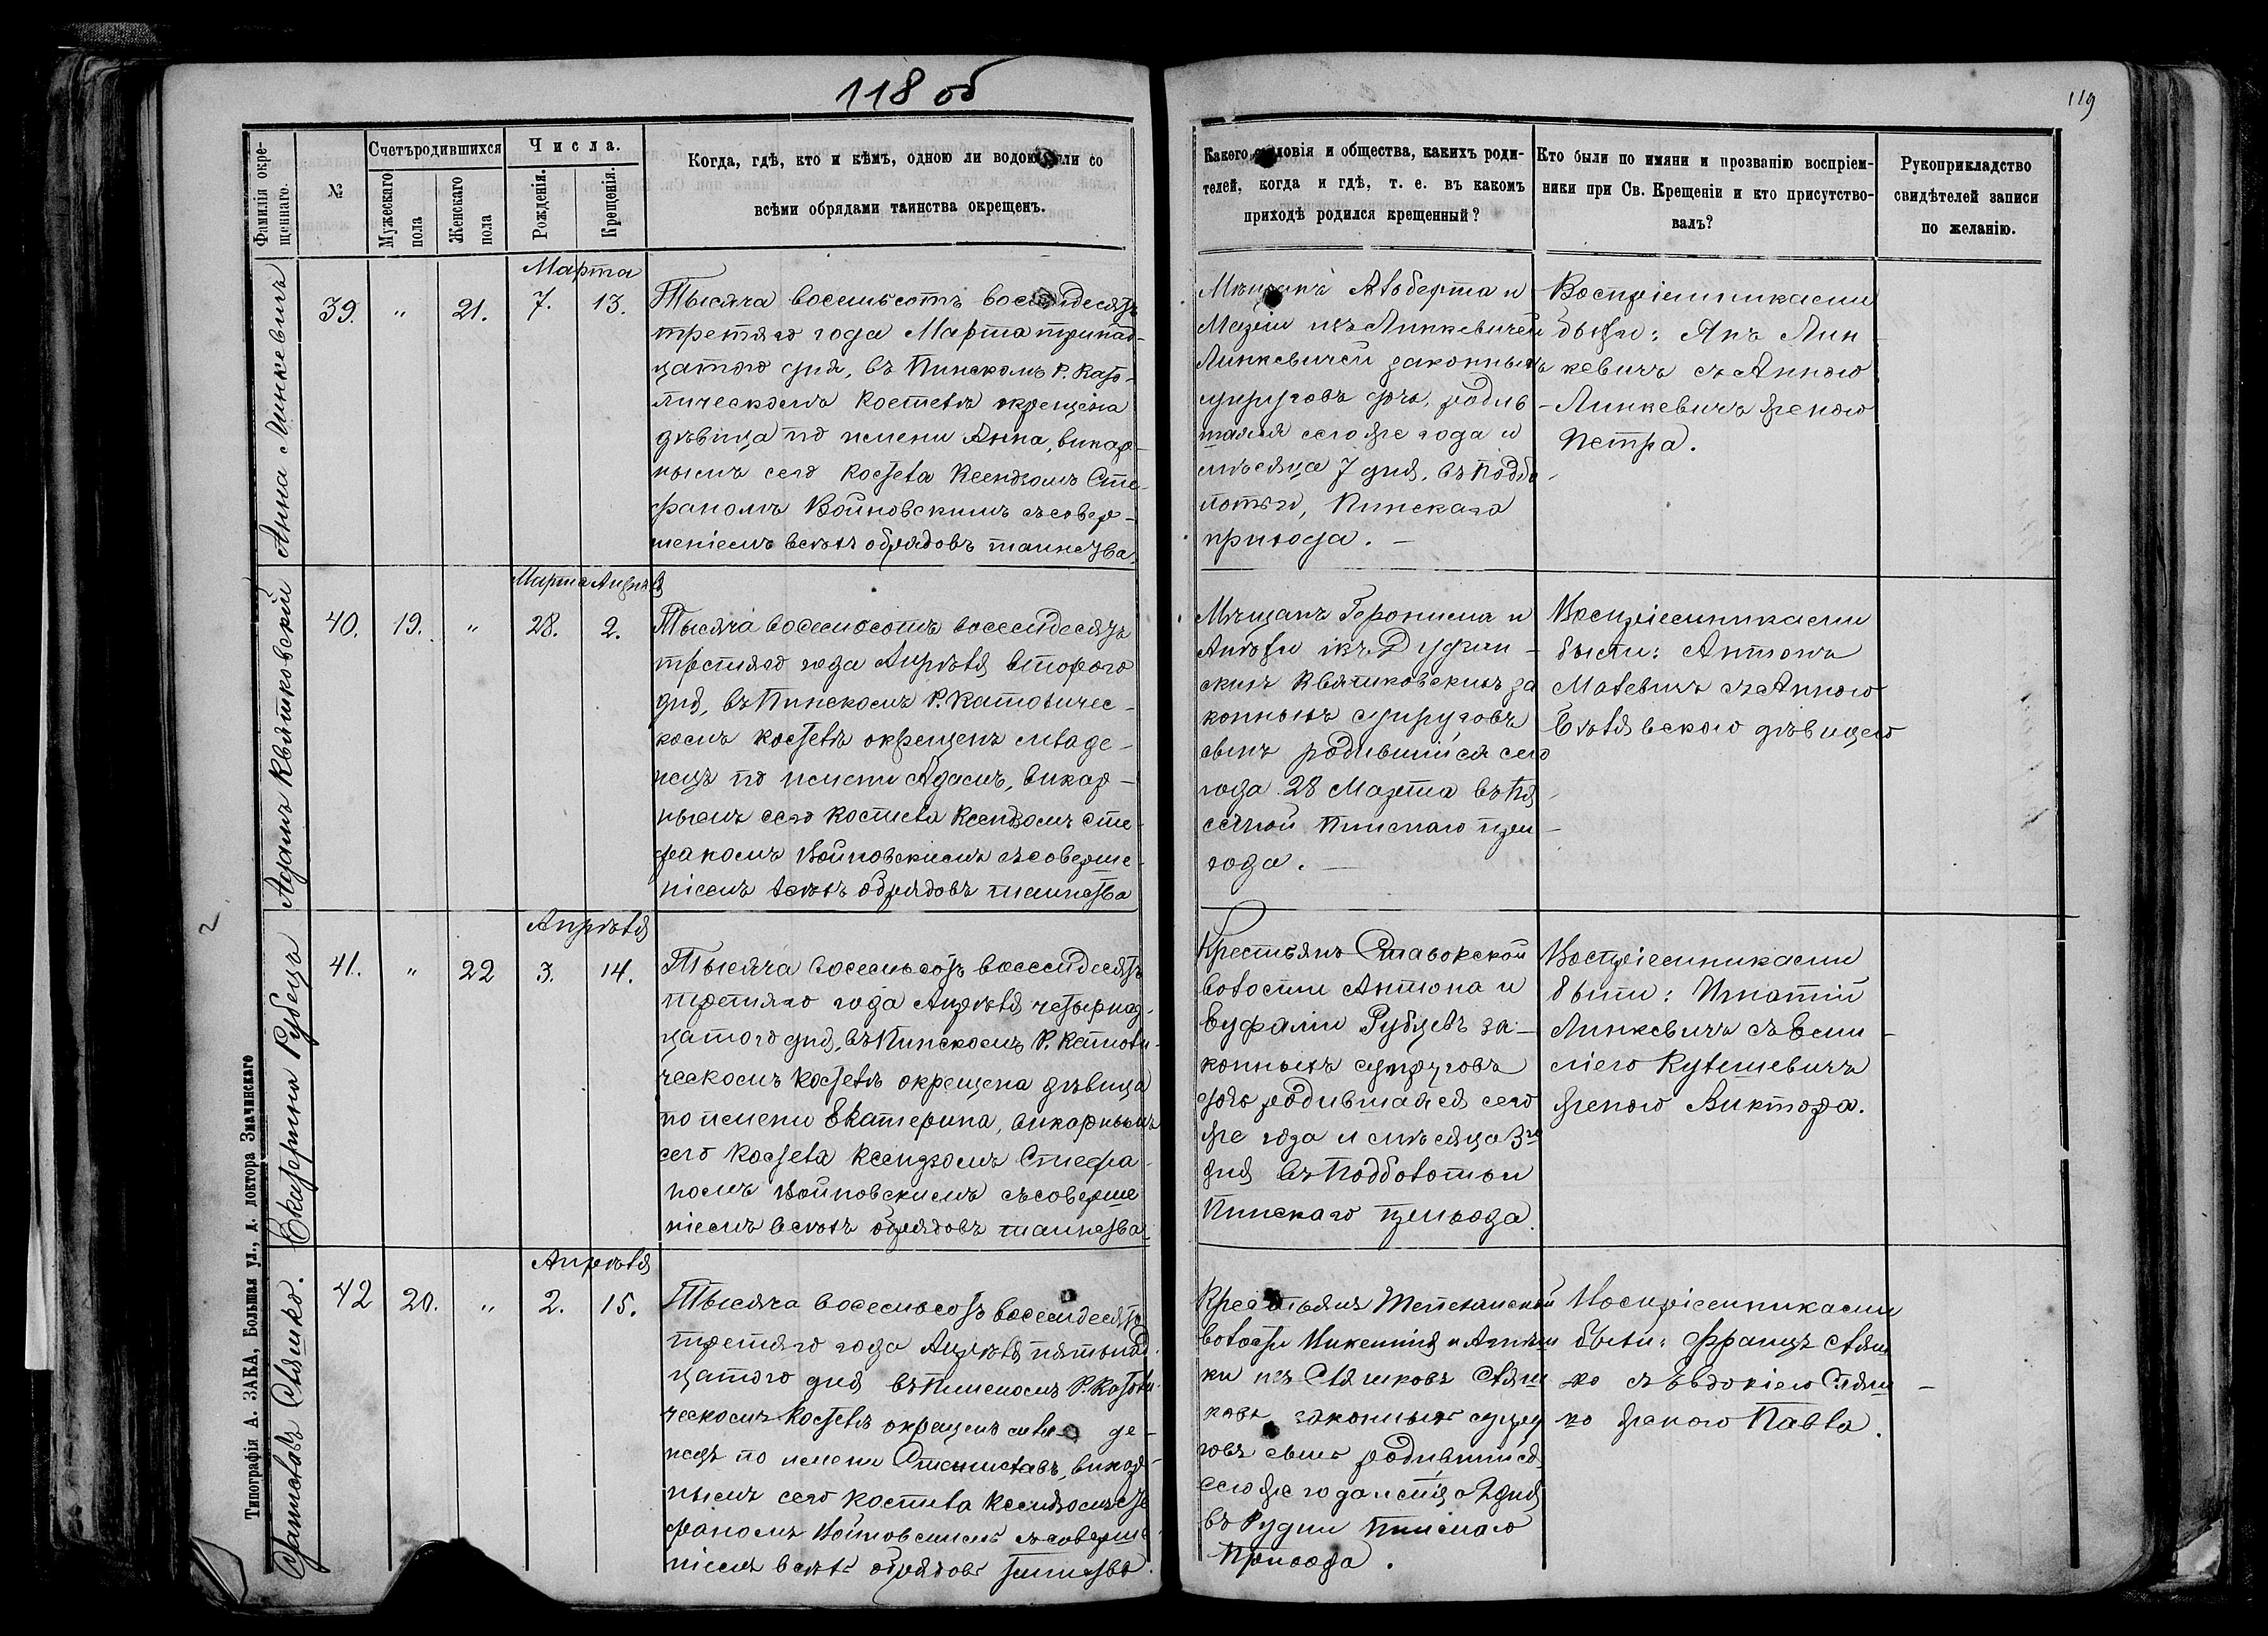 118 об
119
Фамилія окре-
щеннаго.
№
Счетъ родившихся
Мужескаго
пола
Женскаго
пола
Числа.
Рожденія.
Крещенія.
Когда, гдѣ, кто и кѣмъ, одною ли водою или со
всѣми обрядами таинства окрещенъ.
Какого условія и общества, какихъ роди-
телей, когда и гдѣ, т. е. въ какомъ
приходѣ родился крещенный?
Кто были по имяни и прозванію воспріем-
ники при Св. Крещеніи и кто присутство-
валъ?
Рукоприкладство
свидѣтелей записи
по желанію.
Анна Линкевичъ
39.
"
21.
Марта
7.
13.
Тысяча восемьсотъ восемьдесятъ
третяго года Марта тринад-
цатого дня, въ Пинскомъ Р. Като-
лическомъ костелѣ окрещена
дѣвица по имени Анна, викар-
нымъ сего костела Ксендзомъ Сте-
фаномъ Войновскимъ съ совер-
шеніемъ всѣхъ обрядовъ таинства.
Мѣщанъ Альберта и
Маріи изъ Линкевичей
Линкевичей законныхъ
супруговъ дочь, родив
шаяся сего же года и
мѣсяца 7 дня, въ Подбо
лотьи, Пинскаго
прихода. —
Воспріемниками
были: Янъ Лин
кевичъ съ Анною
Линкевичъ женою
Петра.
Адамъ Квятковскій
40.
19.
"
Марта Апрѣля
28.
2.
Тысяча восемьсотъ восемдесятъ
третяго года Апрѣля второго
дня, въ Пинскомъ Р. Католичес-
комъ костелѣ окрещенъ младе-
нецъ по имени Адамъ, викар-
нымъ сего костела Ксендзомъ Сте-
фаномъ Войновскимъ съ соверше-
ніемъ всѣхъ обрядовъ таинства
Мѣщанъ Геронима и
скихъ Квятковскихъ за
конныхъ супруговъ
сынъ родившійся сего
года 28 Марта въ
Пинскаго при-
хода. —
Воспріемниками
были: Антонъ
съ Анною
дѣвицею
Екатерина Рубецъ
41.
"
22
Апрѣля
3.
14.
Тысяча восемьсотъ восемдесятъ
третяго года Апрѣля четырнад-
цатого дня, въ Пинскомъ Р. Католи-
ческомъ костелѣ окрещена дѣвица
по имени Екатерина, викарнымъ
сего костела Ксендзомъ Стефа-
номъ Войновскимъ съ соверше
ніемъ всѣхъ обрядовъ таинства.
Крестьянъ Ставокской
волости Антона и
Евфаліи Рубцевъ за-
конныхъ супруговъ
дочь родившаяся сего
же года и мѣсяца 3го
дня въ Подболотьи
Пинскаго прихода.
Воспріемниками
были: Игнатій
Линкевичъ съ Эми-
ліею Кулешевичъ
женою Виктора.
Станиславъ Сляшко.
42
20.
"
Апрѣля
2.
15.
Тысяча восемьсотъ восемдесятъ
третяго года Апрѣля пятьнад-
цатого дня въ Пинскомъ Р. Католи-
ческомъ костелѣ окрещенъ мла де-
нецъ по имени Станиславъ, викар-
нымъ сего костела Ксендзомъ Сте
фаномъ Войновскимъ съ соверше-
ніемъ всѣхъ обрядовъ таинства.
Крестьянъ
волости Викентія и
ки изъ Сляшковъ Сляш
ковъ законныхъ супру
говъ сынъ родившійся
сего же года и мѣсяца 2 дня
въ Рудни Пинскаго
Прихода.
Воспріемниками
были: Францъ Сляш
ко съ Евдокіею Сляш-
ко женою Павла.
Типографія А. ЗАКА, Большая ул., д. доктора Значинскаго